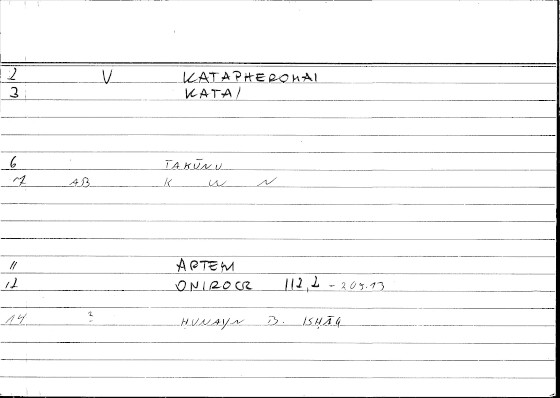 2 V KATAPHEROMAI
3 KATAI
6 TAKŪNU
7 AB K W N
11 ARTEM
12 ONIROCR 112,2 - 209.13
14 ? HUNAYN B. ISḤĀQ